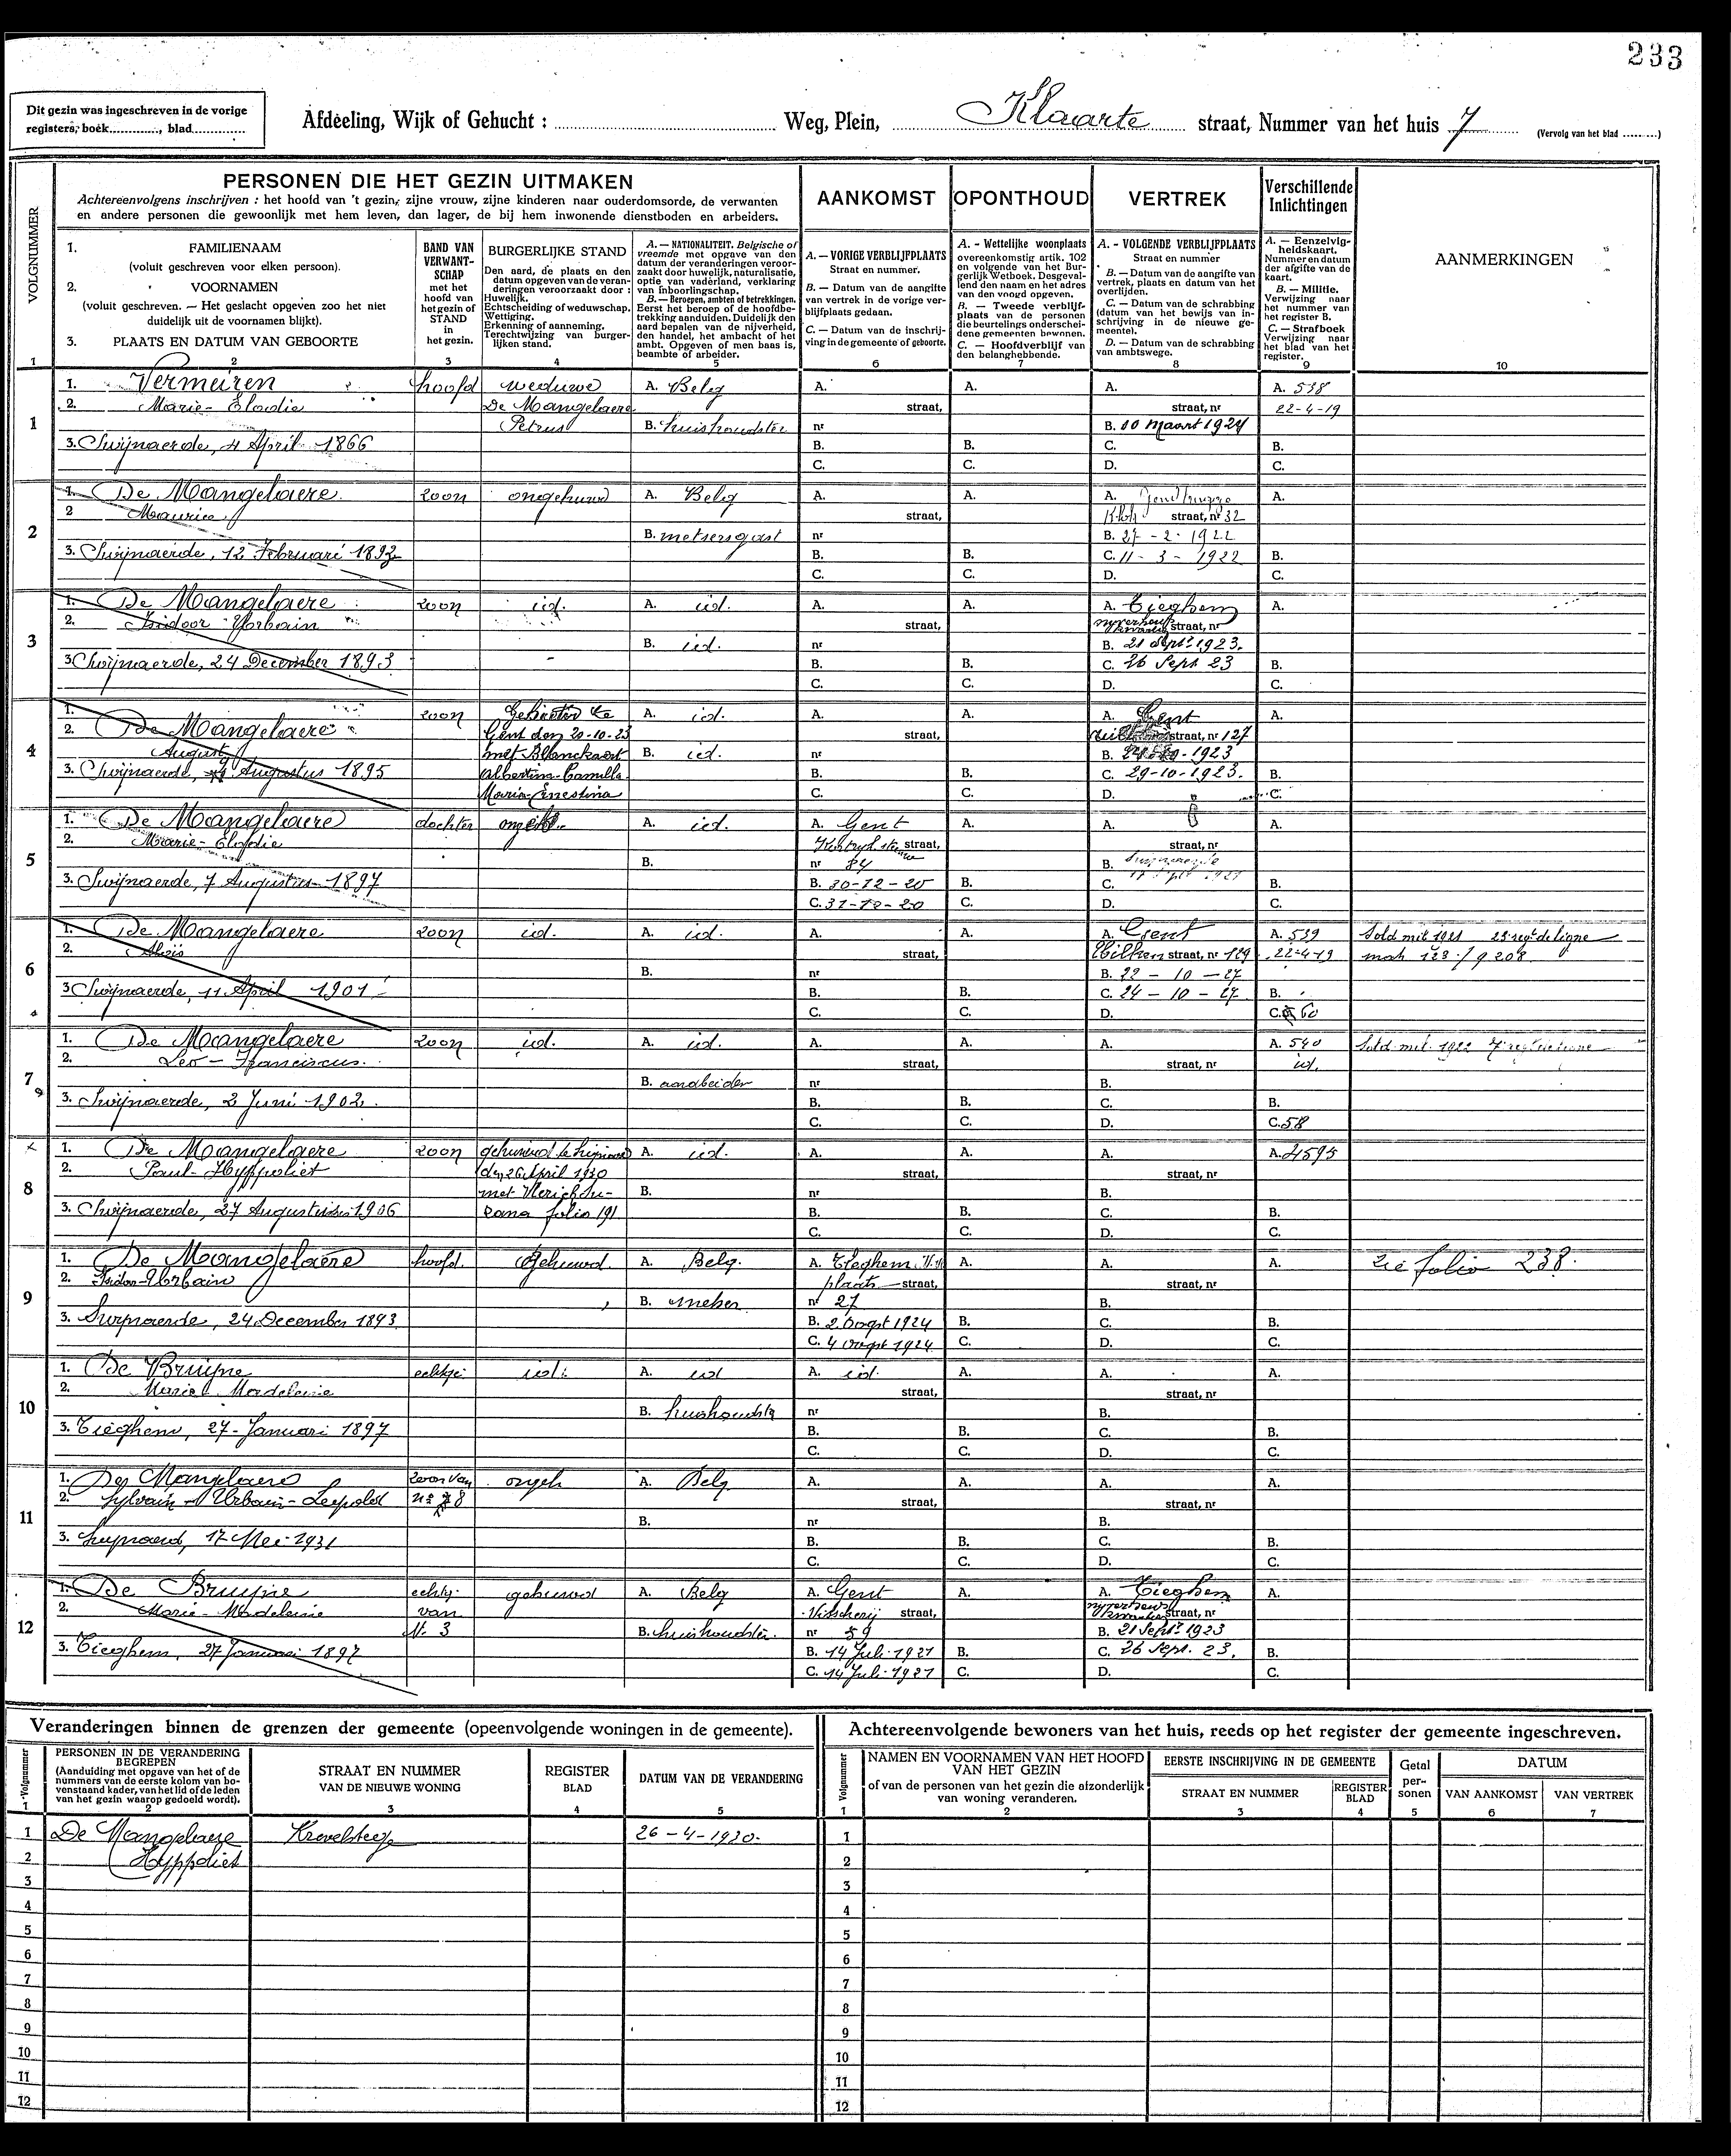 233
Dit gezin was ingeschreven in de vorige
registers, boek............, blad..............
Afdeeling, Wijk of Gehucht : Weg, Plein, Klaarte straat, Nummer van het huis 7 (Vervolg van het blad ........)
VOLGNUMMER
PERSONEN DIE HET GEZIN UITMAKEN
Achtereenvolgens inschrijven : het hoofd van 't gezin, zijne vrouw, zijne kinderen naar ouderdomsorde, de verwanten
en andere personen die gewoonlijk met hem leven, dan lager, de bij hem inwonende dienstboden en arbeiders.
AANKOMST
OPONTHOUD
VERTREK
Verschillende
Inlichtingen
1. FAMILIENAAM
(voluit geschreven voor elken persoon).
2. VOORNAMEN
(voluit geschreven. — Het geslacht opgeven zoo het niet
duidelijk uit de voornamen blijkt).
3. PLAATS EN DATUM VAN GEBOORTE
BAND VAN
VERWANT-
SCHAP
met het
hoofd van
het gezin of
STAND
in
het gezin.
BURGERLIJKE STAND
Den aard, de plaats en den
datum opgeven van de veran-
deringen veroorzaakt door :
Huwelijk.
Echtscheiding of weduwschap.
Wettiging.
Erkenning of aanneming.
Terechtwijzing van burger-
lijken stand.
A. — NATIONALITEIT. Belgische of
vreemde met opgave van den
datum der veranderingen veroor-
zaakt door huwelijk, naturalisatie,
optie van vaderland, verklaring
van inboorlingschap.
B. — Beroepen, ambten of betrekkingen.
Eerst het beroep of de hoofdbe-
trekking aanduiden. Duidelijk den
aard bepalen van de nijverheid,
den handel, het ambacht of het
ambt. Opgeven of men baas is,
beambte of arbeider.
A. — VORIGE VERBLIJFPLAATS
Straat en nummer.
B. — Datum van de aangifte
van vertrek in de vorige ver-
blijfplaats gedaan.
C. — Datum van de inschrij-
ving in de gemeente of geboorte.
A. - Wettelijke woonplaats
overeenkomstig artik. 102
en volgende van het Bur-
gerlijk Wetboek. Desgeval-
lend den naam en het adres
van den voogd opgeven.
B. — Tweede verblijf-
plaats van de personen
die beurtelings onderschei-
dene gemeenten bewonen.
C. — Hoofdverblijf van
den belanghebbende.
A. - VOLGENDE VERBLIJFPLAATS
Straat en nummer
B. — Datum van de aangifte van
vertrek, plaats en datum van het
overlijden.
C. — Datum van de schrabbing
(datum van het bewijs van in-
schrijving in de nieuwe ge-
meente).
D. — Datum van de schrabbing
van ambtswege.
A. — Eenzelvig-
heidskaart.
Nummer en datum
der afgifte van de
kaart.
B. — Militie.
Verwijzing naar
het nummer van
het register B.
C. — Strafboek
Verwijzing naar
het blad van het
register.
AANMERKINGEN
1 2 3 4 5 6 7 8 9 10
1
1. Vermeiren hoofd weduwe A. Belg A. A. A. A. 538
2. Marie-Elodie De Mangelaere straat, straat, nr 22-4-19
Petrus B. huishoudster nr B. 10 Maart 1924
3. Swijnaerde, 4 April 1866 B. B. C. B.
C. C. D. C.
2
1. De Mangelaere zoon ongehuwd A. Belg A. A. A. Gendbrugge A.
2 Maurice straat, straat, nr 32
B. metsersgast nr B. 27-2-1922
3. Swijnaerde, 12 Februari 1892 B. B. C. 11-3-1922 B.
C. C. D. C.
3
1. De Mangelaere zoon id. A. id. A. A. A. Tieghem A.
2. Isidoor Urbain straat, straat, nr
B. id. nr B. 21 Sept. 1923.
3 Swijnaerde, 24 December 1893 B. B. C. 26 Sept 23 B.
C. C. D. C.
4
1. De Mangelaere zoon Gehuwd te A. id. A. A. A. Gent A.
2. August Gent den 20-10-23 straat, straat, nr 127
met Blanckaert B. id. nr B. 1923
3. Swijnaerde, Augustus 1895 Albertina-Camilla B. B. C. 29-10-1923. B.
Maria-Ernestina C. C. D. C.
5
1. De Mangelaere dochter A. id. A. Gent A. A. A.
2. Marie-Elodie straat, straat, nr
B. nr 84 B. Swijnaerde
3. Swijnaerde, 7 Augustus 1897 B. 30-12-20 B. C. B.
C. 31-12-20 C. D. C.
6
1. De Mangelaere zoon id. A. id. A. A. A. Gent A. 539 Sold mil 1921 23 regt de ligne
2. Aloïs straat, straat, nr 129 22-4-19 mat 123/9208
B. nr B. 22-10-27
3 Swijnaerde, 11 April 1901 B. B. C. 24-10-27 B.
C. C. D. C. 60
7
1. De Mangelaere zoon id. A. id. A. A. A. A. 540 Sold. mil. 1922 7 regt de ligne
2. Leo-Franciscus. straat, straat, nr id.
B. aardbeider nr B.
3. Swijnaerde, 2 Juni 1902. B. B. C. B.
C. C. D. C. 58
8
1. De Mangelaere zoon gehuwd te A. id. A. A. A. A. 4595
2. Paul-Hyppoliet den 26 April 1930 straat, straat, nr
met B. nr B.
3. Swijnaerde, 27 Augustus 1906 folio 191 B. B. C. B.
C. C. D. C.
9
1. De Mangelaere hoofd. Gehuwd. A. Belg. A. Tieghem A. A. A. zie folio 238.
2. Isidor-Urbain plaats straat, straat, nr
B. nr 27 B.
3. Swijnaerde, 24 December 1893 B. 2 Oogst 1924 B. C. B.
C. 4 Oogst 1924 C. D. C.
10
1. De Bruijne echtge. id. A. id A. id. A. A. A.
2. Marie Madeleine straat, straat, nr
B. huishoudstr nr B.
3. Tieghem, 27 Januari 1897 B. B. C. B.
C. C. D. C.
11
1. De Mangelaere zoon van ongeh A. Belg A. A. A. A.
2. Sylvain-Urbain-Leopold nr 8 straat, straat, nr
B. nr B.
3. 17 Mei 1931 B. B. C. B.
C. C. D. C.
12
1. De Bruijne echtg. gehuwd A. Belg A. Gent A. A. Tieghem A.
2. Marie-Madeleine van Visscherij straat, straat, nr
N. 3 B. huishoudster. nr 59 B. 21 Sept. 1923
3. Tieghem, 27 Januari 1897 B. 14 Juli 1921 B. C. 26 Sept. 23. B.
C. 14 Juli 1921 C. D. C.
Veranderingen binnen de grenzen der gemeente (opeenvolgende woningen in de gemeente).
Volgnummer
PERSONEN IN DE VERANDERING
BEGREPEN
(Aanduiding met opgave van het of de
nummers van de eerste kolom van bo-
venstaand kader, van het lid of de leden
van het gezin waarop gedoeld wordt).
STRAAT EN NUMMER
VAN DE NIEUWE WONING
REGISTER
BLAD
DATUM VAN DE VERANDERING
1 2 3 4 5
1 De Mangelaere 26-4-1930.
2 Hyppoliet
3
4
5
6
7
8
9
10
11
12
Achtereenvolgende bewoners van het huis, reeds op het register der gemeente ingeschreven.
Volgnummer
NAMEN EN VOORNAMEN VAN HET HOOFD
VAN HET GEZIN
of van de personen van het gezin die afzonderlijk
van woning veranderen.
EERSTE INSCHRIJVING IN DE GEMEENTE
STRAAT EN NUMMER
REGISTER
BLAD
Getal
per-
sonen
DATUM
VAN AANKOMST
VAN VERTREK
1 2 3 4 5 6 7
1
2
3
4
5
6
7
8
9
10
11
12